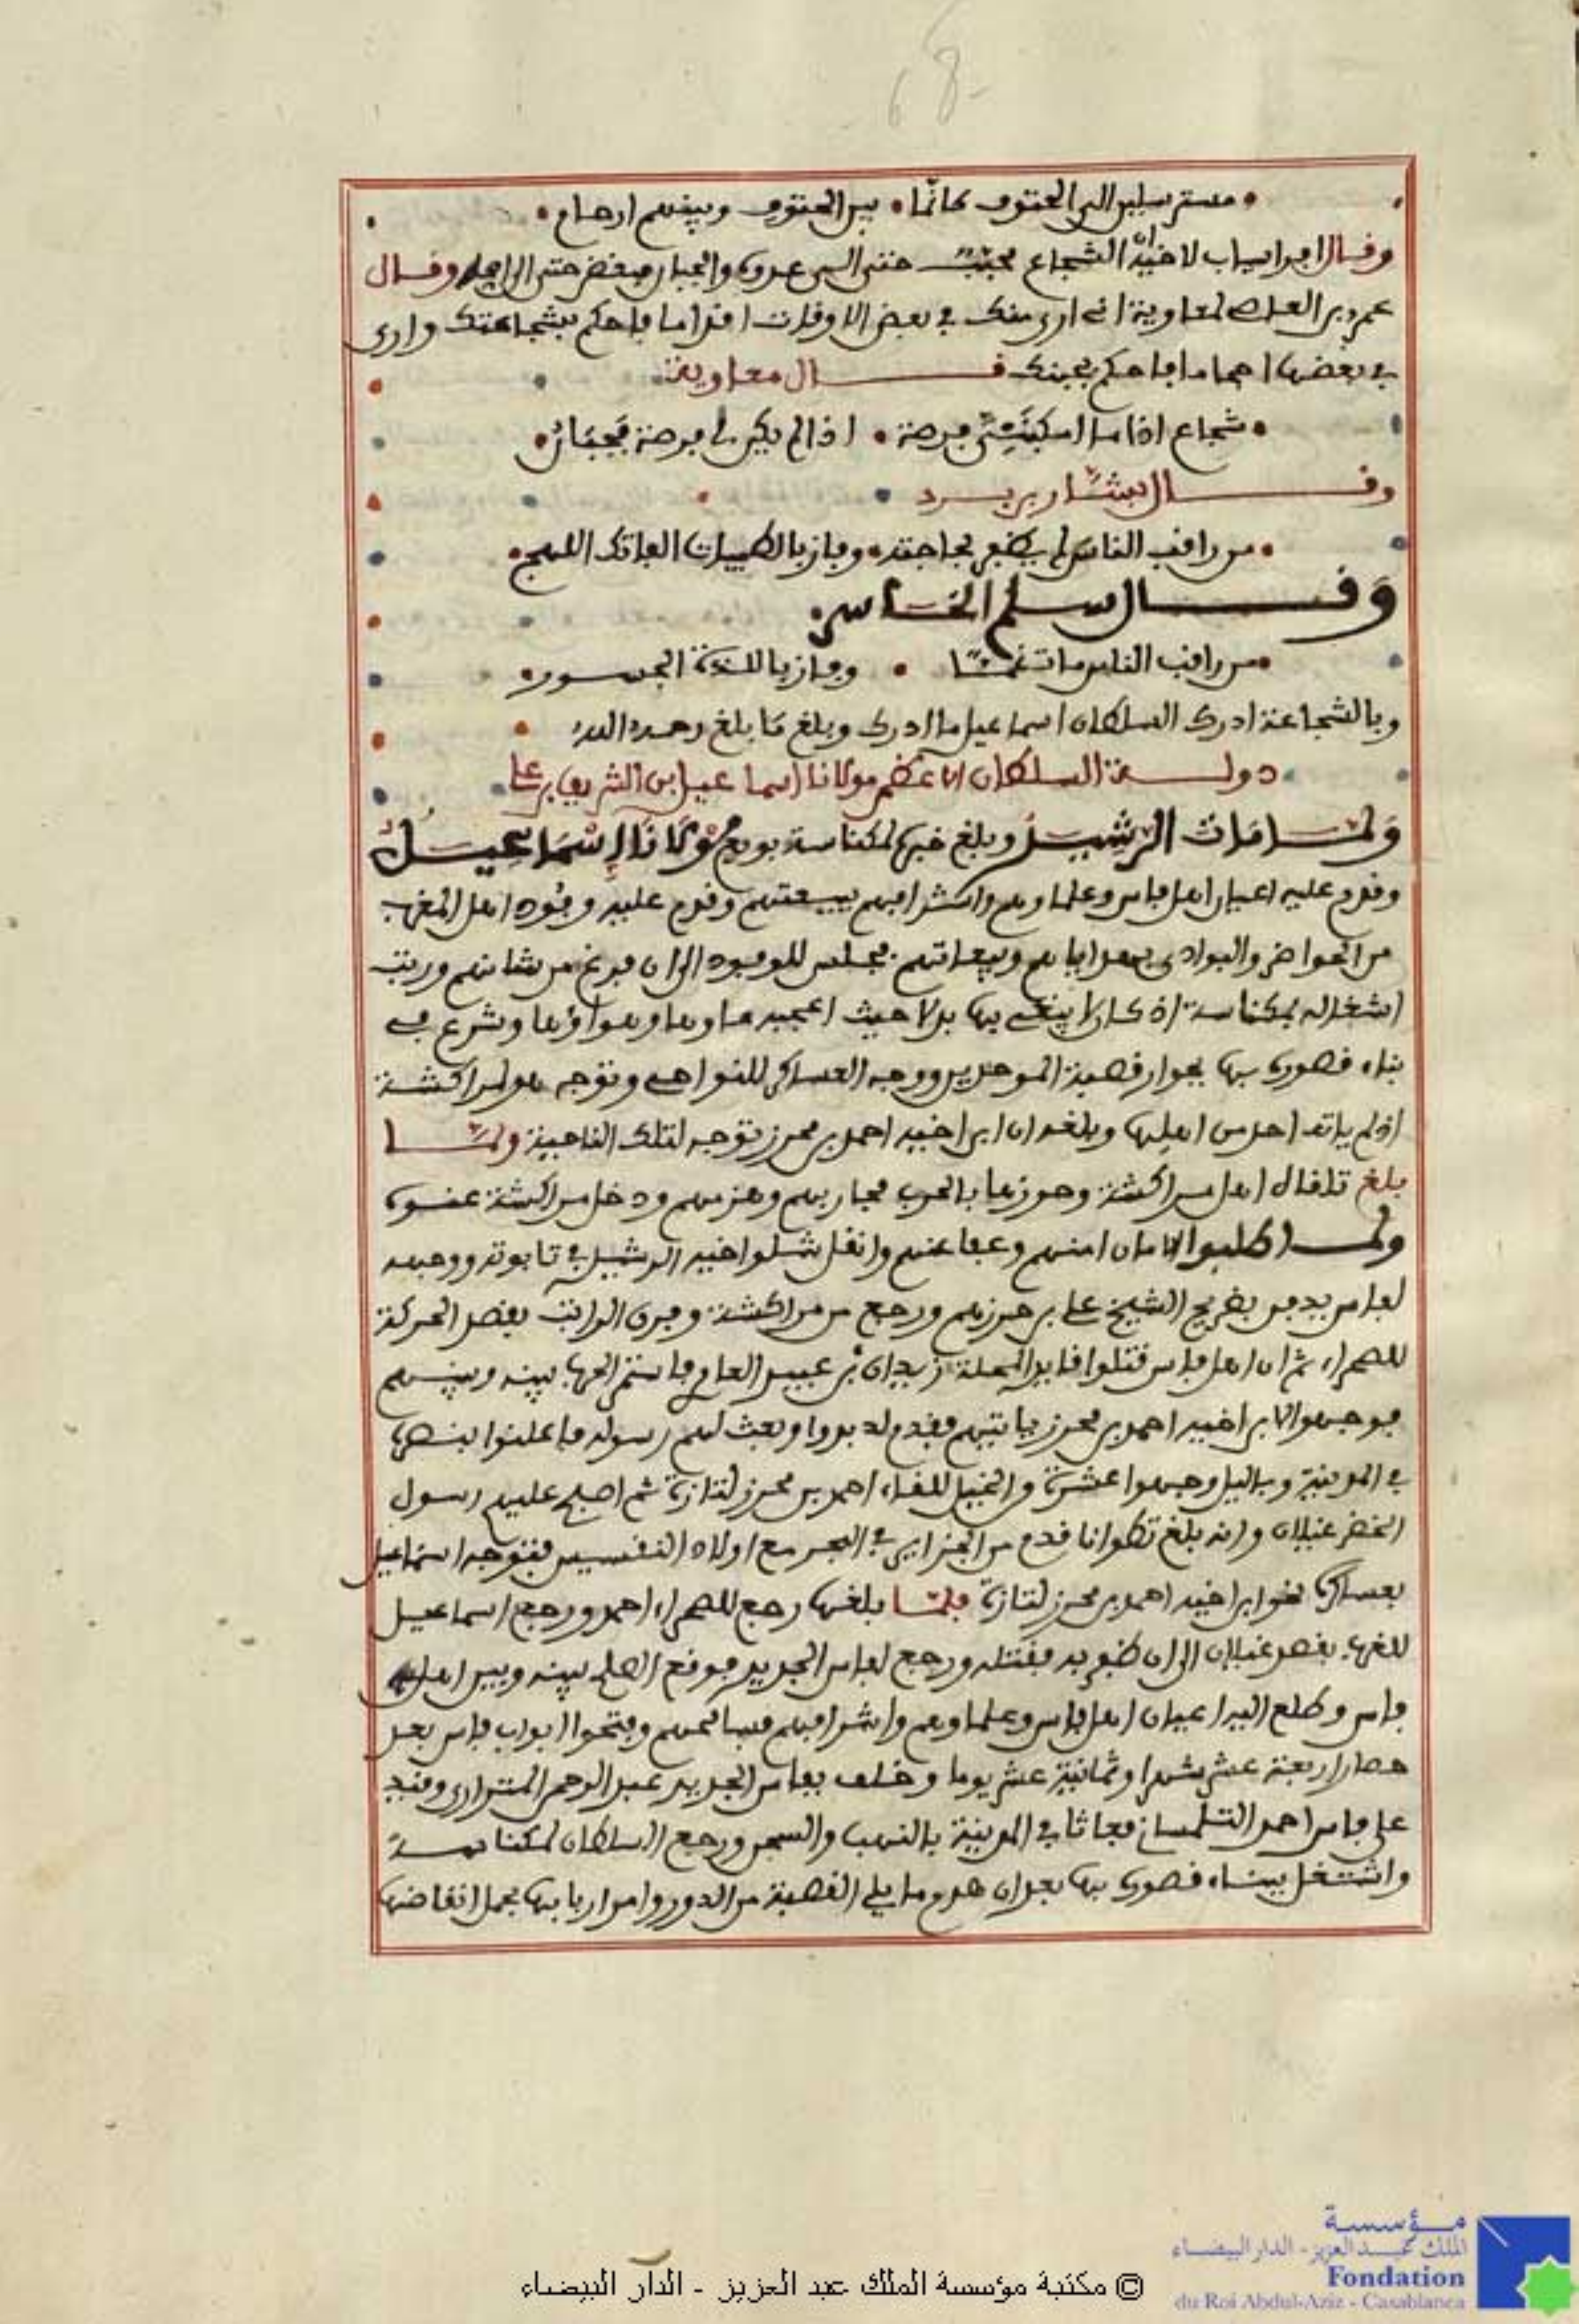 68
مسترسلين الى الحتوف كانما • بين الحتوف وبينهم ارحام
وقال افراسياب لاخيه ان الشجاع محبب حتى الى عدوه والجبان مبغض حتى الى امه وقال
عمرو بن العاص لمعاوية اني ارى منك في بعض الاوقات اقداما فاحكم بشجاعتك وارى
في بعضها احجاما فاحكم بجبنك قال معاوية
شجاع اذا ما امكنتني فرصة • اذا لم يكن لي فرصة فجبان
وقال بشار بن برد
من راقب الناس لم يظفر بحاجته • وفاز بالطيبات الفاتك اللهج
وقال سلم الخاسر
من راقب الناس مات غما • وفاز باللذة الجسور
وبالشجاعة ادرك السلطان اسماعيل ما ادرك وبلغ ما بلغ رحمه الله
دولة السلطان الاعظم مولانا اسماعيل ابن الشريف بن علي
ولما مات الرشيد وبلغ خبره لمكناسة بويع مولانا إسماعيل
وقدم عليه اعيان اهل فاس وعلماوهم واشرافهم ببيعتهم وقدم عليه وفود اهل المغرب
من الحواضر والبوادي بهداياهم وبيعاتهم فجلس للوفود الى ان فرغ من شانهم ورتب
اشغاله بمكناسة اذ كان لا يبغي بها بدلا حيث اعجبه ماوها وهواؤها وشرع في
بناء قصوره بها بجوار قصبة الموحدين ووجه العساكر للنواحي وتوجه هو لمراكشة
اذ لم ياته احد من اهلها وبلغه ان ابن اخيه احمد بن محرز توجه لتلك الناحية ولما
بلغ تلقاه اهل مراكشة وحوزها بالحرب فحاربهم وهزمهم ودخل مراكشة عنوة
ولما طلبوا الامان امنهم وعفا عنهم ونقل شلو اخيه الرشيد في تابوته ووجهه
لفاس يدفن بضريح الشيخ علي بن حرزهم ورجع من مراكشة وفرق الراتب بقصد الحركة
للصحراء ثم ان اهل فاس قتلوا قايد المحلة زيدان بن عبيد العامري فاستمر الحرب بينه وبينهم
فوجهوا لابن اخيه احمد بن محرز ياتيهم فقدم لدبدوا وبعث لهم رسوله فاعلنوا بنصره
في المدينة وبالليل وجهوا عشرة من الخيل للقاء احمد بن محرز لتازة ثم اصبح عليهم رسول
الخضر غيلان وانه بلغ تطوانا قدم من الجزاير في البحر مع اولاد النقسيس فتوجه اسماعيل
بعساكره نحو ابن اخيه احمد بن محرز لتازة فلما بلغها رجع للصحراء احمد ورجع اسماعيل
للغرب بقصد غيلان الى ان ظفر به فقتله ورجع لفاس الجديد فوقع الصلح بينه وبين اهل
فاس وطلع اليه اعيان اهل فاس وعلماوهم واشرافهم فسامحهم وفتحوا ابواب فاس بعد
حصار اربعة عشر شهرا وثمانية عشر يوما وخلف بفاس الجديد عبد الرحمن المتراري وقيد
على فاس احمد التلمساني فعاثا في المدينة بالنهب والسجن ورجع السلطان لمكناسة
واشتغل ببناء قصوره بها بعد ان هدم ما يلي القصبة من الدور وامر اربابها بحمل انقاضها
مؤسسة
الملك عبد العزيز - الدار البيضاء
Fondation
du Roi Abdul-Aziz - Casablanca
© مكتبة مؤسسة الملك عبد العزيز - الدار البيضاء